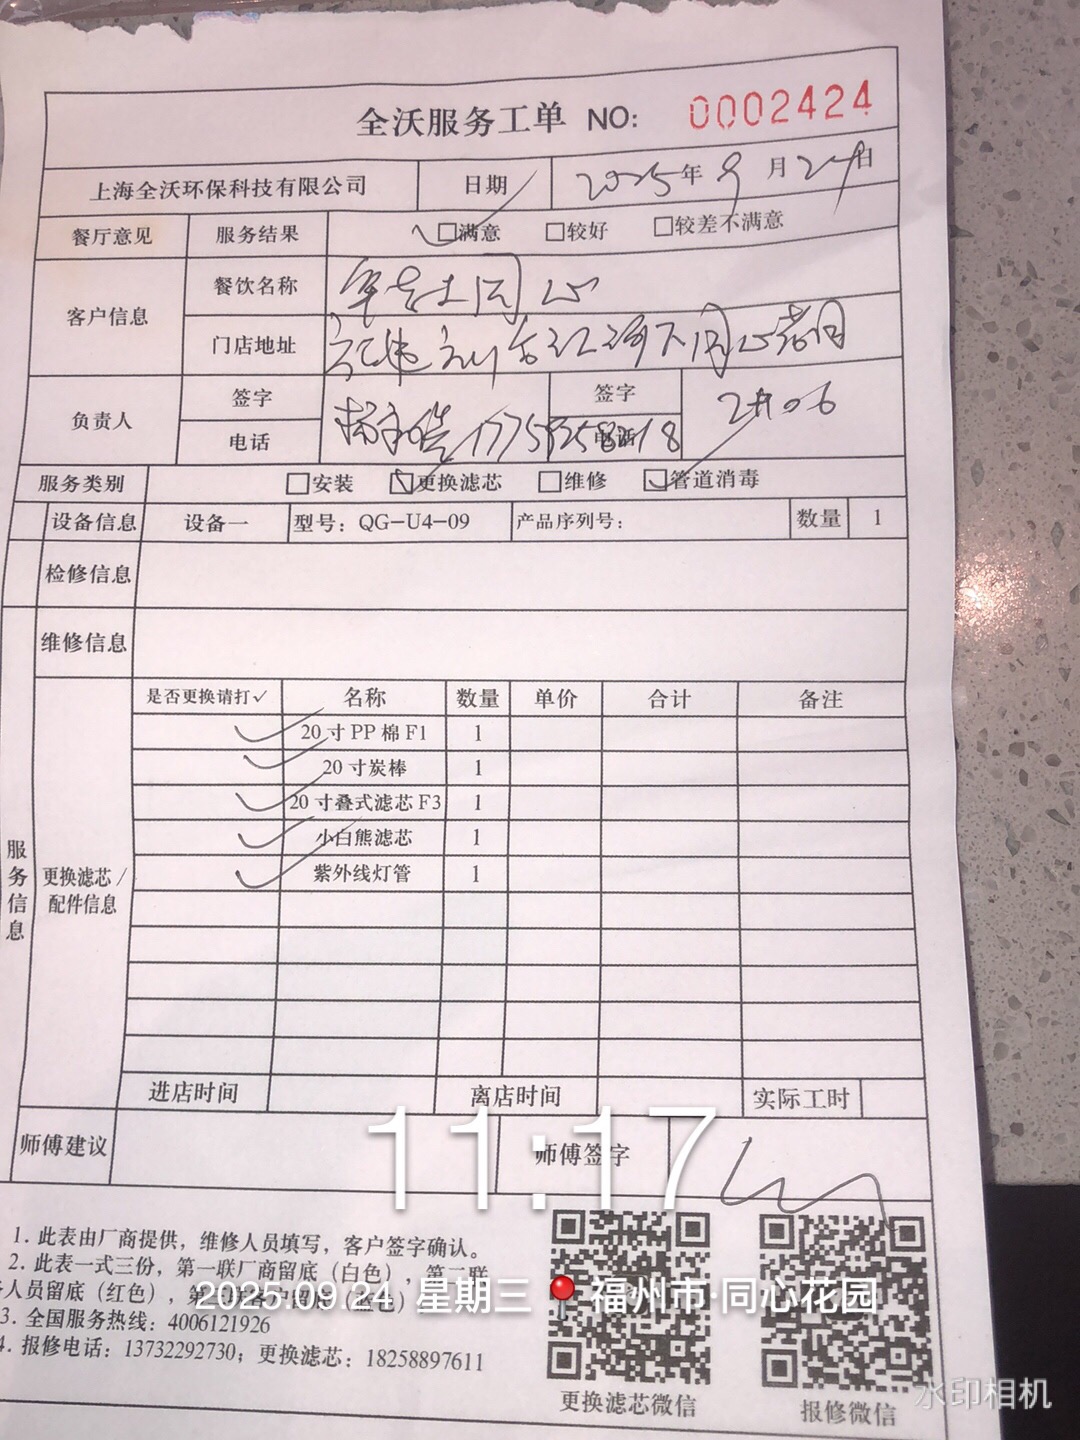 全沃服务工单 NO: 0002424
上海全沃环保科技有限公司 日期 2025年9月24日
餐厅意见 服务结果 ☑满意 □较好 □较差不满意
客户信息 餐饮名称 同心
门店地址 同心花园
负责人 签字 签字 2#06
电话 电话
服务类别 □安装 ☑更换滤芯 □维修 ☑管道消毒
设备信息 设备一 型号：QG-U4-09 产品序列号： 数量 1
检修信息
维修信息
是否更换请打✓ 名称 数量 单价 合计 备注
✓ 20寸PP棉F1 1
✓ 20寸炭棒 1
✓ 20寸叠式滤芯F3 1
✓ 小白熊滤芯 1
✓ 紫外线灯管 1
服务信息
更换滤芯/
配件信息
进店时间 离店时间 实际工时
11:17
师傅建议 师傅签字
1. 此表由厂商提供，维修人员填写，客户签字确认。
2. 此表一式三份，第一联厂商留底（白色），第二联
人员留底（红色），
2025.09.24 星期三 福州市·同心花园
3. 全国服务热线：4006121926
4. 报修电话：13732292730；更换滤芯：18258897611
更换滤芯微信 报修微信
水印相机